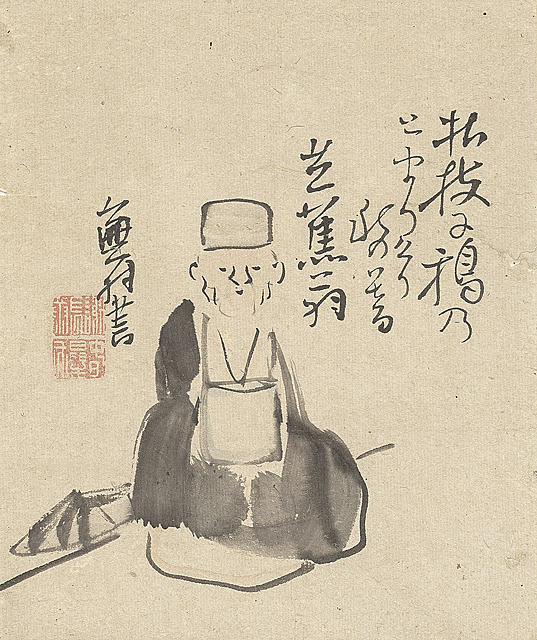 枯枝に鴉乃
とまりけり
秋の暮
芭蕉翁
蕪村書